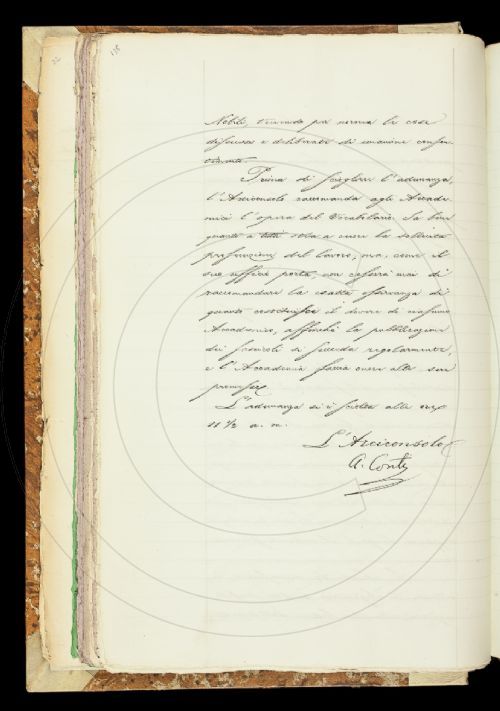 138
Nobili, tenendo per norma le cose
discusse e deliberate di comune consen-
timento.
Prima di sciogliere l'adunanza,
l'Arciconsolo raccomanda agli Accade-
mici l'opera del Vocabolario. Sa bene
quanto a tutti stia a cuore la sollecita
del lavoro; ma, come il
suo ufficio porta, non cesserà mai di
raccomandare la esatta osservanza di
quanto costituisce il dovere di ciascuno
Accademico, affinché la pubblicazione
dei fascicoli si succeda regolarmente,
e l'Accademia faccia onore alle sue
promesse.
L'adunanza si è sciolta alle ore
11 1/2 a. m.
L'Arciconsolo
A. Conti